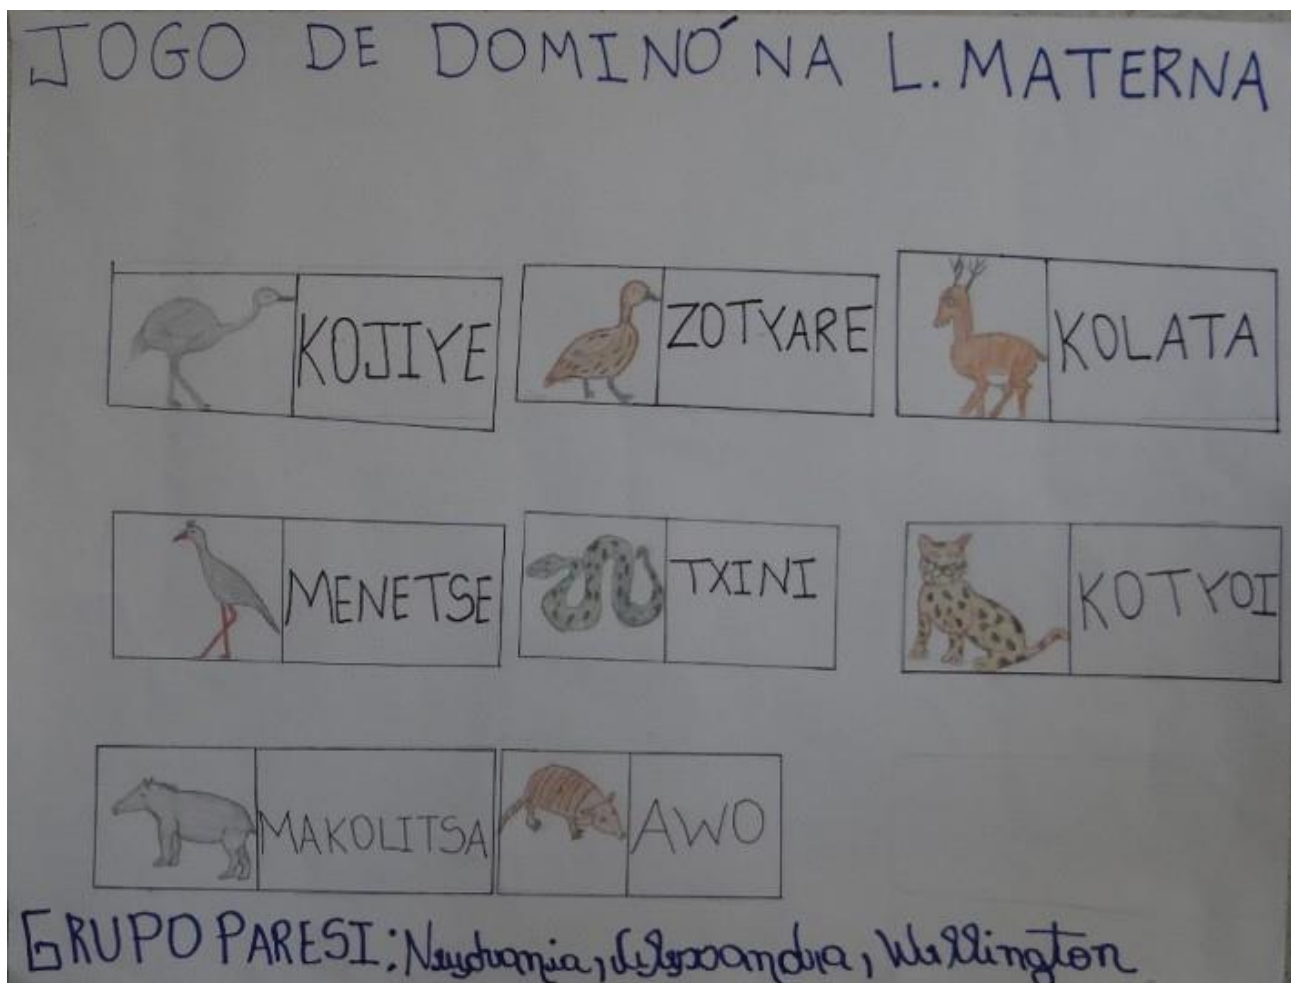 JOGO DE DOMINÓ NA L. MATERNA
KOJIYE
ZOTYARE
KOLATA
MENETSE
TXINI
KOTYOI
MAKOLITSA
AWO
GRUPO PARESI: Neydvania, Alessandra, Wellington